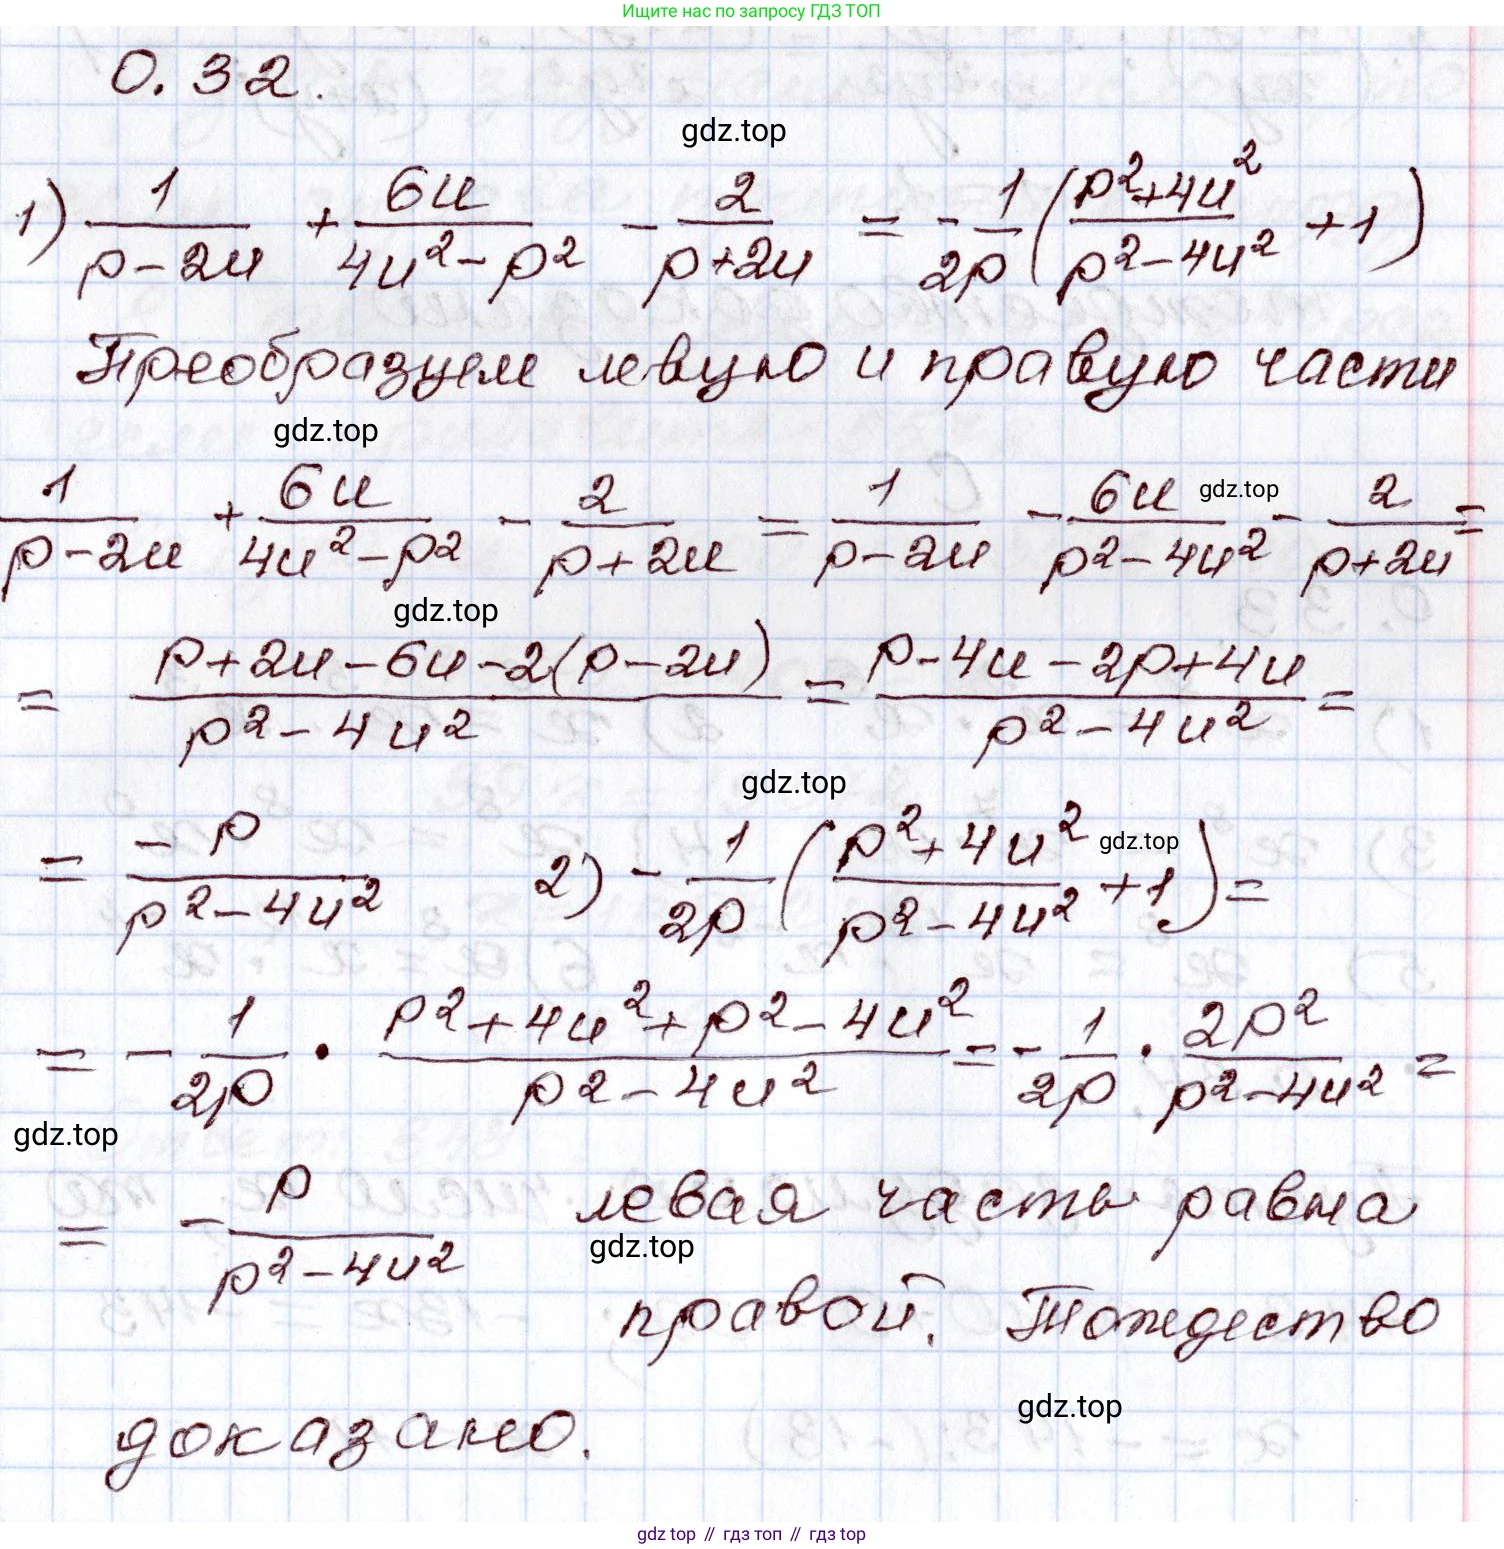 Ищите нас по запросу ГДЗ ТОП
0.32.
gdz.top
1) 1/(p-2u) + 6u/(4u²-p²) - 2/(p+2u) = -1/2p ((p²+4u²)/(p²-4u²) + 1)
Преобразуем левую и правую части
gdz.top
1/(p-2u) + 6u/(4u²-p²) - 2/(p+2u) = 1/(p-2u) - 6u/(p²-4u²) - 2/(p+2u) =
gdz.top
gdz.top
= (p+2u-6u-2(p-2u))/(p²-4u²) = (p-4u-2p+4u)/(p²-4u²) =
gdz.top
= -p/(p²-4u²) 2) -1/2p ((p²+4u²)/(p²-4u²) + 1) =
gdz.top
= -1/2p · (p²+4u²+p²-4u²)/(p²-4u²) = -1/2p · 2p²/(p²-4u²) =
gdz.top
= -p/(p²-4u²) левая часть равна
gdz.top
правой. Тождество
gdz.top
доказано.
gdz top // гдз топ // гдз top